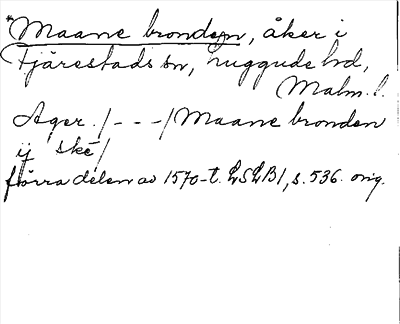 *Maane bronden, åker i
Fjärestads sn, Luggude hd,
Malm. l.
Ager /- - -/ Maane bronden
ij ske/
förra delen av 1570-t. LSLB1, s. 536. orig.